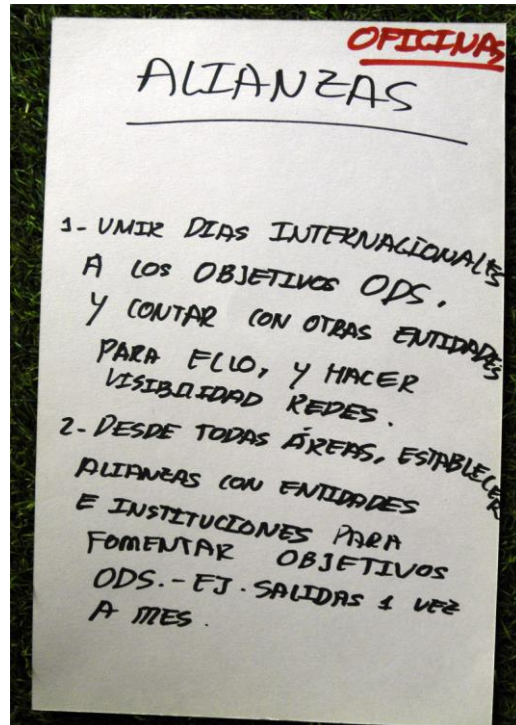 OFICINAS
ALIANZAS
1- UMIR DIAS INTERNACIONALES
A LOS OBJETIVOS ODS.
Y CONTAR CON OTRAS ENTIDADES
PARA ELLO, Y HACER
VISIBILIDAD REDES.
2- DESDE TODAS ÁREAS, ESTABLECER
ALIANZAS CON ENTIDADES
E INSTITUCIONES PARA
FOMENTAR OBJETIVOS
ODS.- EJ. SALIDAS 1 VEZ
A MES.